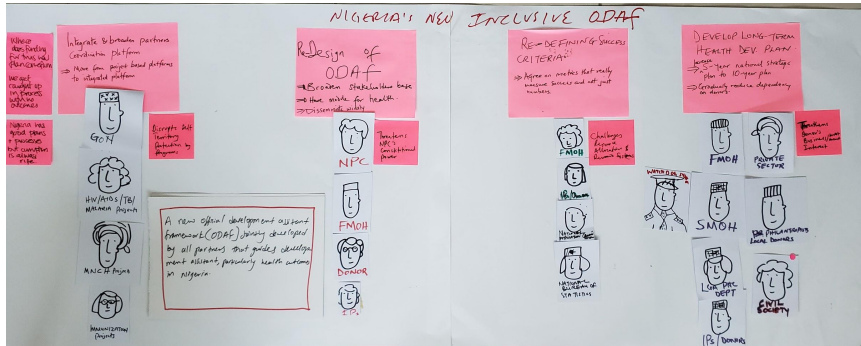 NIGERIA'S NEW INCLUSIVE ODAf
Where does funding
for this new
plan come from
We get
caught up
in process
with no
outcomes
Nigeria has
good plans
& processes
but corruption
is always
rife
Integrate & broaden partners
Coordination platform
⇒ Move from project based platforms
to integrated platform
GON
Disrupts Self
Territory
Protection by
Programs
HIV/AIDS/TB/
MALARIA Projects
MNCH Projects
IMMUNIZATION
Projects
A new official development assistant
framework (ODAf) jointly developed
by all partners that guides develop
ment assistant, particularly health outcomes
in Nigeria.
Re-Design of
ODAf
⇒ Broaden stakeholders base
⇒ Have module for health.
⇒ Disseminate widely
NPC
Threatens
NPC's
Constitutional
power
FMOH
DONOR
IP.
RE-DEFINING SUCCESS
CRITERIA
⇒ Agree on metrics that really
measure success and not just
numbers
FMOH
Challenges
Resource
Allocation &
IPs/Donors
NATIONAL
BUREAU OF
STATISTICS
DEVELOP LONG-TERM
HEALTH DEV. PLAN
⇒ 5-year national strategic
plan to 10-year plan
⇒ Gradually reduce dependency
on donors
FMOH
PRIVATE
SECTOR
Threatens
Donor's
Business/
Interest
SMOH
PHILANTHROPIS
LOCAL DONORS
LGA PHC
DEPT
CIVIL
SOCIETY
IPs/DONORS